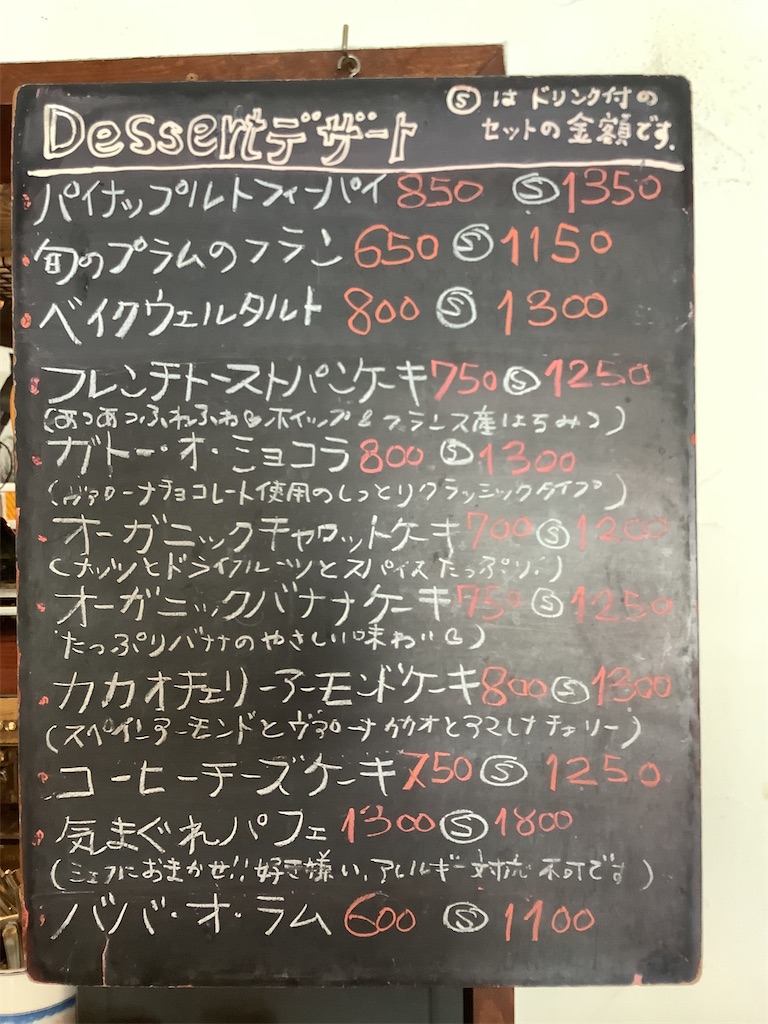 Dessertデザート
Ⓢ は ドリンク付の
セットの金額です.
パイナップルトフィーパイ 850 Ⓢ 1350
旬のプラムのフラン 650 Ⓢ 1150
ベイクウェルタルト 800 Ⓢ 1300
フレンチトーストパンケーキ 750 Ⓢ 1250
(あつあつふわふわ ホイップ & フランス産はちみつ)
ガトー・オ・ショコラ 800 Ⓢ 1300
(ヴァローナチョコレート使用のしっとりクラッシックタイプ)
オーガニックキャロットケーキ 700 Ⓢ 1200
(ナッツとドライフルーツとスパイスたっぷり!)
オーガニックバナナケーキ 750 Ⓢ 1250
たっぷりバナナのやさしい味わい)
カカオチェリーアーモンドケーキ 800 Ⓢ 1300
(スペインアーモンドとヴァローナカカオとアマレナチェリー)
コーヒーチーズケーキ 750 Ⓢ 1250
気まぐれパフェ 1300 Ⓢ 1800
(シェフにおまかせ!!好き嫌い,アレルギー対応 不可です)
ババ・オ・ラム 600 Ⓢ 1100